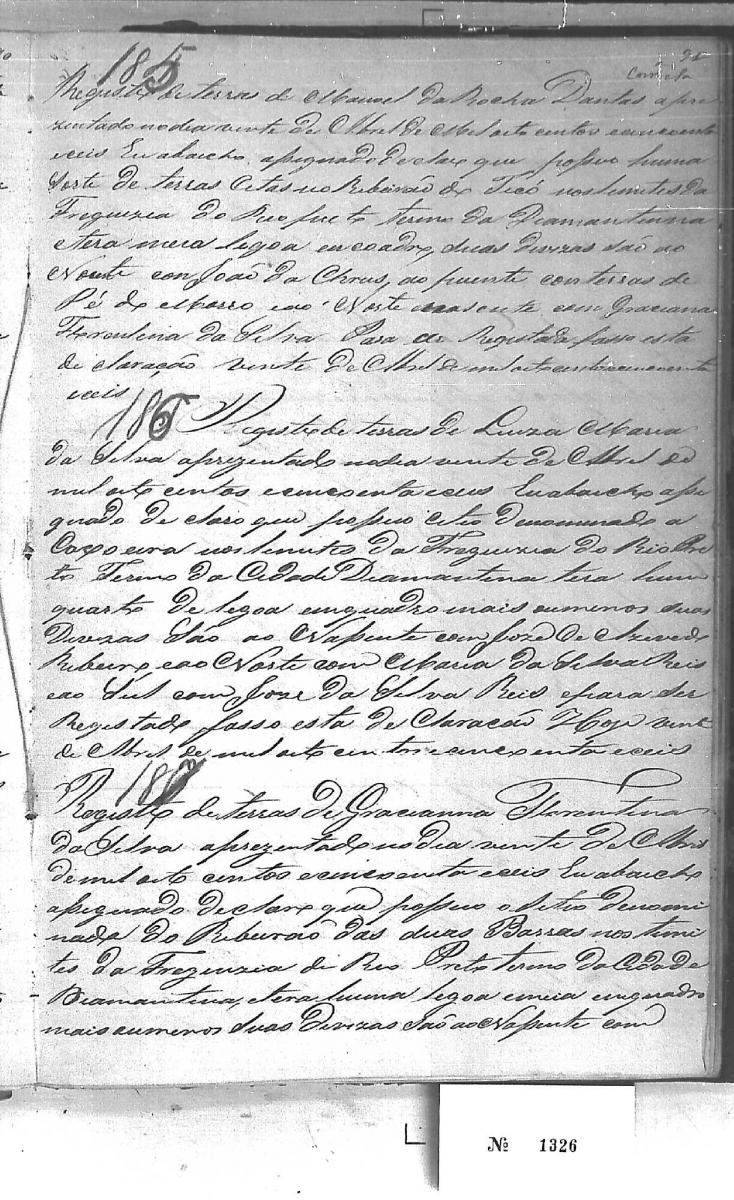 185
Registro de terras de Manoel da Rocha Dantas apre
zentado no dia vinte de Abril de Mil oito centos e cincoenta
e ceis Eu abaicho assignado declaro que possuo huma
Sorte de terras Citas no Ribeirão do nos lemites da
Freguezia do Rio preto termo da Diamantinna
e tera meia legoa em coadro, suas divizas são ao
Norte com João da Chrus, ao puente com terras de
Pé do Morro e ao Norte com Graciana
Florentina da Silva Para ser Registado fasso esta
declaração vinte de Abril de mil oito centos e cincoenta
e ceis
186 Registro de terras de Luiza Maria
da Silva aprezentado no dia vinte de Abril de
mil oito centos e cincoenta e ceis Eu abaicho assi
gnado declaro que possuo Citio denominado a
Caxoeira nos lemites da Freguezia do Rio Pre
to Termo da Cidade Diamantina tera hum
quarto de legoa em quadro mais ou menos suas
Divizas São ao Napente com Joze de Azevedo
Ribeiro e ao Norte com Maria da Silva Reis
e ao Sul com Joze da Silva Reis e para ser
Registado fasso esta declaração Hoje vinte
de Abril de mil oito centos e cincoenta e ceis
187
Registro de terras de Gracianna Florentina
da Silva aprezentado no dia vinte de Abril
de mil oito centos e cincoenta e ceis Eu abaicho
assignado declaro que possuo o Sitio denomi
nado do Ribeirão das duas Barras nos limi
tes da Freguezia do Rio Preto termo da Cidade
Diamantina, e tera huma legoa e meia em quadro
mais ou menos suas Divizas são ao Napente com
Nº 1326